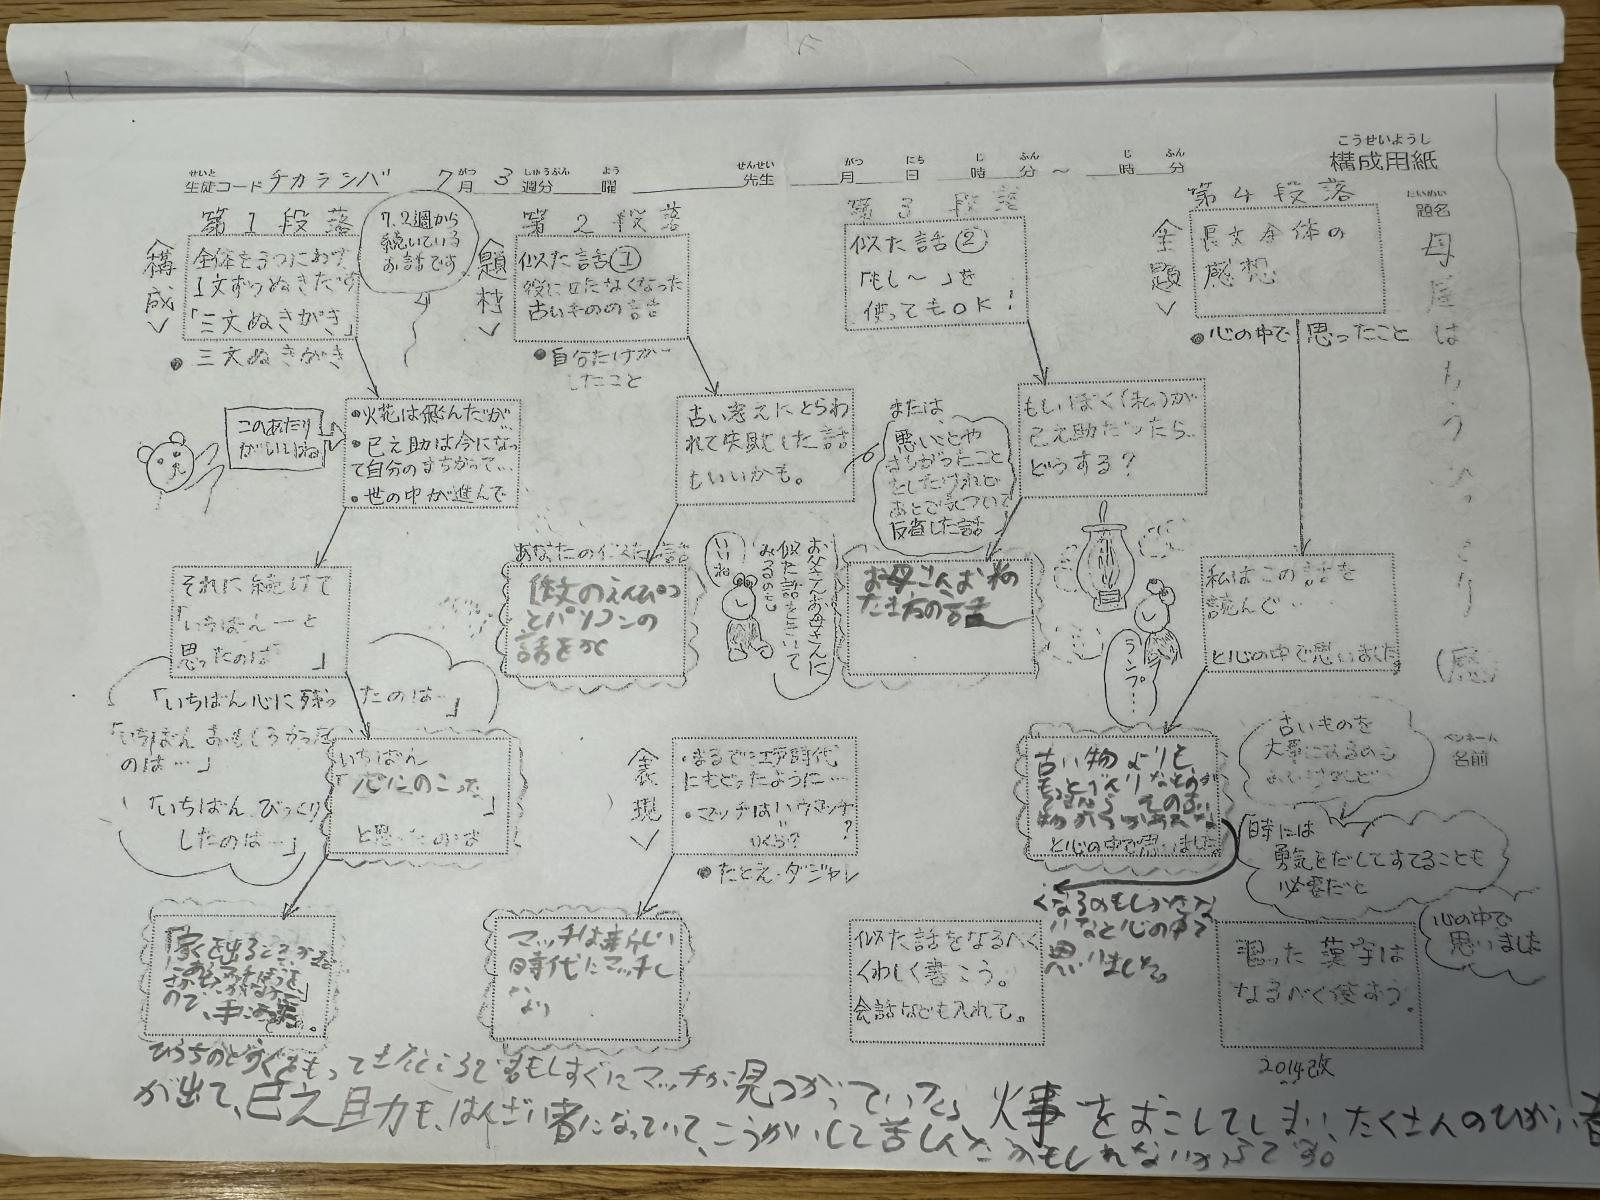 こうせいようし
構成用紙
せいと
生徒コード チカラシバ
がつ
7月
しゅうぶん
3週分
よう
曜
せんせい
先生
がつ にち じ ふん じ ふん
月 日 時 分 ～ 時 分
だいめい
題名
母屋は
ペンネーム
名前
第1段落
＜構成＞
全体を3つにわけ
1文ずつぬきだす
「三文ぬきがき」
●三文ぬきがき
7.2週から
続いている
お話です
このあたり
がいいね
●火花は飛んだが…
●巳之助は今になっ
て自分のまちがって…
●世の中が進んで
それに続けて
「いちばん―と
思ったのは 」
「いちばん心に残っ
たのは…」
「いちばんおもしろかった
のは…」
「いちばんびっくり
したのは…」
いちばん
「心にのこった」
と思ったのは
第2段落
＜題材＞
似た話①
役に立たなくなった
古いものの話
●自分だけが…
したこと
古い考えにとらわ
れて失敗した話
もいいかも。
または、
悪いことや
まちがったこと
をしたけれど
あとで気づいて
反省した話
あなたの似た話
作文のえんぴつ
とパソコンの
話をかく
いいね
お父さんお母さんに
似た話をきいて
みるのも
＜表現＞
●まるで江戸時代
にもどったように…
●マッチはハウマッチ
＝
いくら?
●たとえ・ダジャレ
マッチは新しい
時代にマッチし
第3段落
似た話②
「もし～」を
使ってもOK！
もしぼく（私）が
巳之助だったら…
どうする？
お母さんお米の
たき方の話
似た話をなるべく
くわしく書こう。
会話なども入れて。
第4段落
＜主題＞
長文全体の
感想
●心の中で思ったこと
ランプ…
私はこの話を
読んで…
と心の中で思いました。
古い物よりも、
もっとべんりなものが
と心の中で思いました。
くなるのもしかたな
いなと心の中で
思いました。
古いものを
大事にするのも
時には
勇気をだしてすてることも
必要だと
心の中で
思いました
習った漢字は
なるべく使おう。
2014改
ひうちのどうぐをもってきたところで
もしすぐにマッチが見つかっていたら
火事をおこしてしまい、たくさんのひがい者
が出て、巳之助も、はんざい者になっていて、こうかいして苦しんだかもしれないからです。